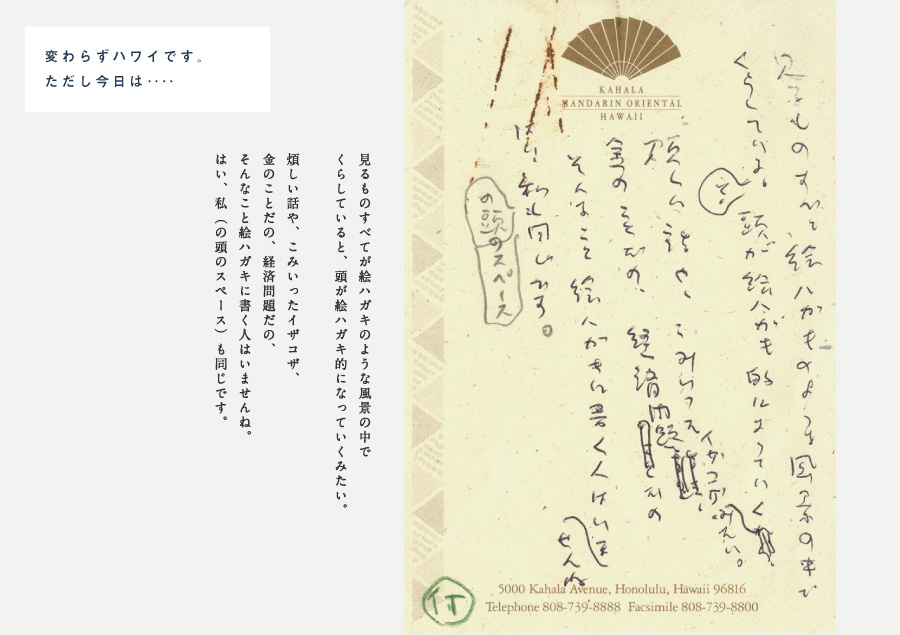 変わらずハワイです。
ただし今日は‥‥
見るものすべてが絵ハガキのような風景の中で
くらしていると、頭が絵ハガキ的になっていくみたい。
煩しい話や、こみいったイザコザ、
金のことだの、経済問題だの、
そんなこと絵ハガキに書く人はいませんね。
はい、私（の頭のスペース）も同じです。
KAHALA
MANDARIN ORIENTAL
HAWAII
見るものすべて絵ハガキのような風景の中で
くらしていると、頭が絵ハガキ的になっていくみたい。
煩しい話や、こみいったイザコザ、
金のことだの、経済問題だの
そんなこと絵ハガキに書く人はいませんね
はい、私も同じです。
の頭のスペース
5000 Kahala Avenue, Honolulu, Hawaii 96816
Telephone 808-739-8888 Facsimile 808-739-8800